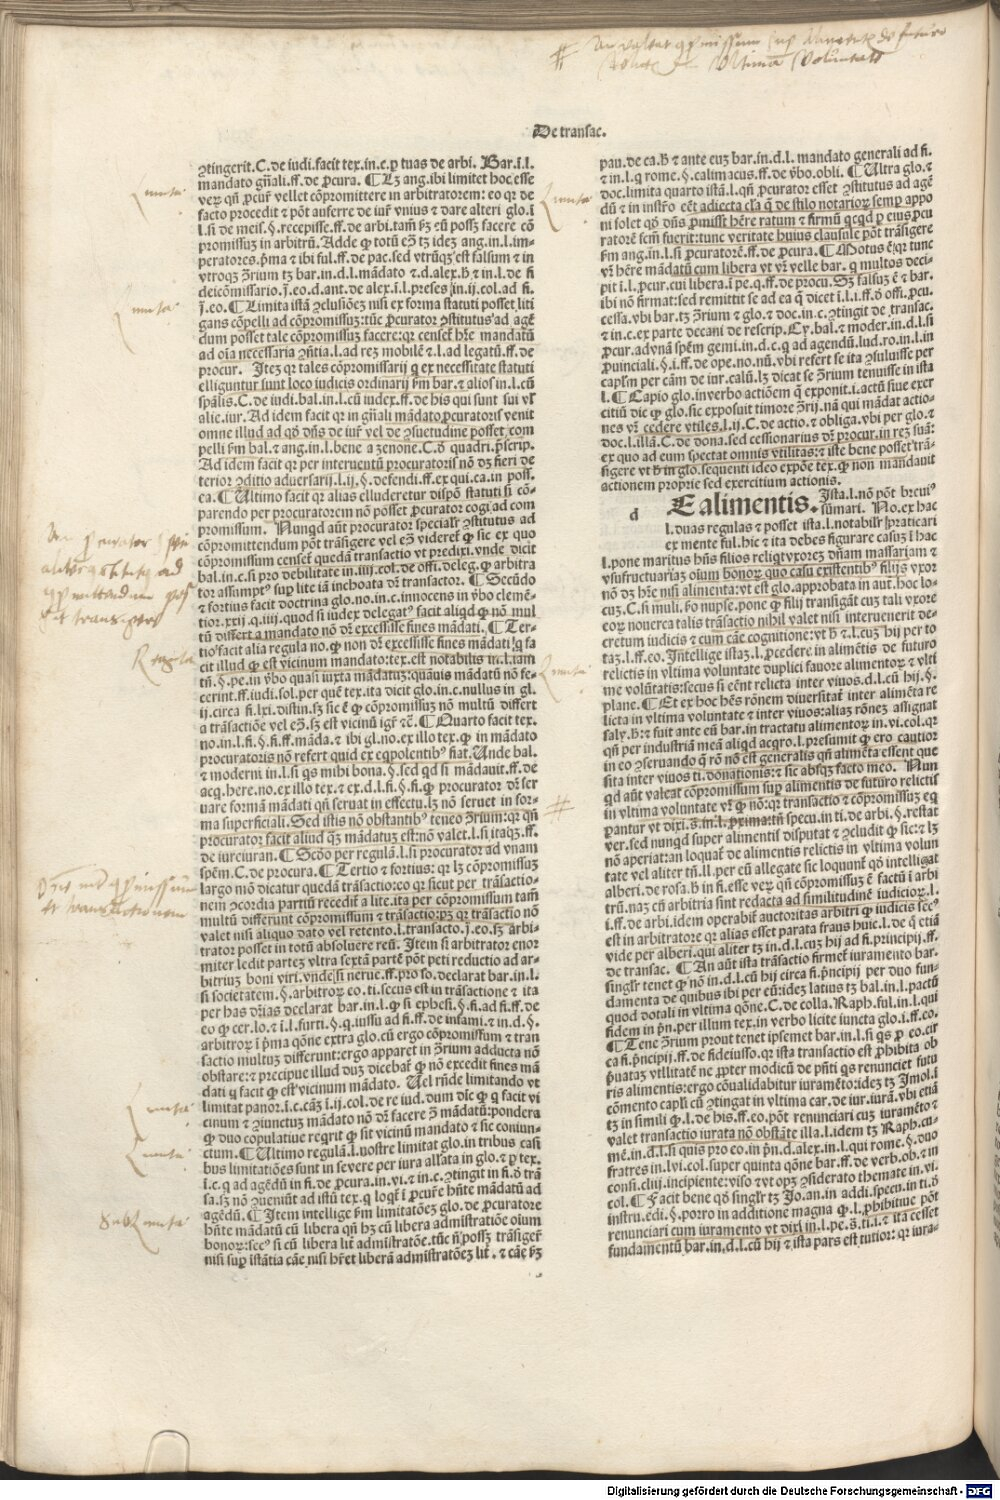 De transac.
ꝯtingerit. C. de iudi. facit tex. in. c. ꝑ tuas de arbi. Bar. i. l.
mandato gñali. ff. de ꝓcura. ¶ Lꝫ ang. ibi limitet hoc esse
veꝝ qñ ꝓcur̃ vellet cõpromittere in arbitratorem: eo qꝛ de
facto procedit ⁊ põt auferre de iur̃ vnius ⁊ dare alteri glo. ĩ
l. si de meis. §. recepisse. ff. de arbi. tam̃ bꝫ eũ possꝫ facere cõ
promissuꝫ in arbitrũ. Adde ꝙ totũ eꝫ̃ tꝫ ideꝫ ang. in. l. im-
peratores. p̃ma ⁊ ibi ful. ff. de pac. sed vtrũqꝫ est falsum ⁊ in
vtroqꝫ ꝯ̃rium tꝫ bar. in. d. l. mãdato ⁊. d. alex. ꝑ ⁊ in. l. de fi
deicõmissario. ĩ. eo. d. ant. de alex. i. l. preses in. ij. col. ad fi.
ĩ. eo. ¶ Limita istã ꝯclusiõeꝫ nisi ex forma statuti posset liti
gans cõpelli ad cõpromissuꝫ: tũc ꝓcurator ꝯstitutus ad agẽ
dum posset tale cõpromissuꝫ facere: qꝛ censet̃ hr̃e mandatũ
ad oĩa necessaria ꝯñtia. l. ad reꝫ mobilẽ ⁊. l. ad legatũ. ff. de
procur. Iteꝫ qꝛ tales cõpromissarij q̃ ex necessitate statuti
elliguntur sunt loco iudicis ordinarij ẜm bar. ⁊ alios in. l. cũ
sp̃alis. C. de iudi. bal. in. l. cũ iudex. ff. de his qui sunt sui vł
alie. iur. Ad idem facit qꝛ in gñali mãdato ꝓcuratoris venit
omne illud ad qð dñs de iur̃ vel de ꝯsuetudine posset com
pelli ẜm bal. ⁊ ang. in. l. bene a zenone. C. ð quadri. p̃scrip.
Ad idem facit qꝛ per interuentũ procuratoris nõ dꝫ fieri de
terior ꝯditio aduersarij. l. ij. §. defendi. ff. ex qui. ca. in poss.
ea. ¶ Ultimo facit qꝛ alias elluderetur dispõ statuti si cõ-
parendo per procuratorem nõ posset ꝓcurator cogi ad com
promissum. Nunqd aũt procurator specialr̃ ꝯstitutus ad
cõpromittendum põt trãsigere vel eꝫ̃ videret̃ ꝙ sic ex quo
cõpromissum censet̃ quedã transactio vt predixi. vnde dicit
bal. in. c. si pro debilitate in. iiij. col. de offi. deleg. ꝙ arbitra
tor assumpt⁹ suꝑ lite iã inchoata dr̃ transactor. ¶ Secũdo
⁊ fortius facit doctrina glo. no. in. c. innocens in ṽbo clemẽ-
tior. xxij. q. iiij. quod si iudex delegat⁹ facit aliqd ꝙ nõ mul
tũ differt a mandato nõ dr̃ excessisse fines mãdati. ¶ Ter-
tio facit alia regula no. ꝙ non dr̃ excessisse fines mãdati q̃ fa
cit illud ꝙ est vicinum mandato: tex. est notabilis in. l. iam
tñ. §. pe. in ṽbo quasi iuxta mãdatuꝫ: quãuis mãdatũ nõ fe-
cerint. ff. iudi. sol. per quẽ tex. ita dicit glo. in. c. nullus in gl.
ij. circa fi. lxi. distin. sꝫ sic ẽ ꝙ cõpromissuꝫ nõ multũ differt
a trãsactiõe vel eꝫ̃. sꝫ est vicinũ igr̃ ⁊c̃. ¶ Quarto facit tex.
no. in. l. fi. §. fi. ff. mãda. ⁊ ibi gl. no. ex illo tex. ꝙ in mãdato
procuratoris nõ refert quid ex eqpolentib⁹ fiat. Unde bal.
⁊ moderni in. l. si qs mihi bona. §. sed qd si mãdauit. ff. de
acq. here. no. ex illo tex. ⁊ ex. d. l. fi. §. fi. ꝙ procurator dr̃ ser
uare formã mãdati qñ seruat in effectu. lꝫ nõ seruet in for-
ma superficiali. Sed istis nõ obstantib⁹ teneo ꝯ̃rium: qꝛ qñ
procurator facit aliud q̃ꝫ mãdatuꝫ est: nõ valet. l. si itaqꝫ. ff.
de iureiuran. ¶ Scðo per regulã. l. si procurator ad vnam
spẽm. C. de procura. ¶ Tertio ⁊ fortius: qꝛ lꝫ cõpromissuꝫ
largo mõ dicatur quedã trãsactio: eo qꝛ sicut per trãsactio-
nem ꝯcordia partiũ recedit̃ a lite. ita per cõpromissum tam̃
multũ differunt cõpromissum ⁊ trãsactio: pꝫ qꝛ trãsactio nõ
valet nisi aliquo dato vel retento. l. transacto. ĩ. eo. sꝫ arbi-
trator posset in totũ absoluere reũ. Item si arbitrator enor
miter ledit partez vltra sextã partẽ põt peti reductio ad ar-
bitriuꝫ boni viri. vnde si nerue. ff. pro so. declarat bar. in. l.
si societatem. §. arbitroꝝ eo. ti. secus est in trãsactione ⁊ ita
per has dr̃ias declarat bar. in. l. ꝙ si ephesi. §. fi. ad fi. ff. de
eo ꝙ cer. lo. ⁊ ĩ. l. furti. §. q. iussu ad fi. ff. de infami. ⁊ in. d. §.
arbitroꝝ ĩ p̃ma qõne extra glo. cũ ergo cõpromissum ⁊ tran
sactio multuꝫ differunt: ergo apparet in ꝯ̃rium adducta nõ
obstare: ⁊ precipue illud duꝫ dicebat̃ ꝙ nõ excedit fines mã
dati q̃ facit ꝙ est vicinum mãdato. Uel rñde limitando vt
limitat panor. ĩ. c. cãꝫ ĩ. ij. col. de re iud. dum dic̃ ꝙ q̃ facit vi
cinum ⁊ ꝯiunctuꝫ mãdato nõ dr̃ facere ꝯ̃ mãdatũ: pondera
ꝙ duo copulatiue reqrit̃ ꝙ sit vicinũ mandato ⁊ sic coniun-
ctum. ¶ Ultimo regulã. l. nostre limitat glo. in tribus casi
bus limitatiões sunt in seuere per iura allata in glo. ⁊ ꝑ tex.
ĩ. c. q. ad agẽdũ in fi. de ꝓcura. in. vi. ⁊ in. c. ꝯtingit in fi. ð trã
sa. sꝫ nõ ꝯueniũt ad istũ tex. q. loqt̃ ĩ ꝓcur̃e hñte mãdatũ ad
agẽdũ. ¶ Item intellige ẜm limitatõeꝫ glo. de ꝓcuratore
hñte mãdatũ cũ libera qñ hꝫ cũ libera admĩstratiõe oĩum
bonoꝝ: sec⁹ si cũ libera lit̃ admĩstratõe. tũc ñ possꝫ trãsiger̃
nisi suꝑ istãtia cãe nisi hr̃et liberã admĩstratõeꝫ lit̃. ⁊ cãe ẜꝫ
pau. de ca. ꝑ ⁊ ante euꝫ bar. in. d. l. mandato generali ad fi.
⁊ in. l. q̃ rome. §. calimacus. ff. de ṽbo. obli. ¶ Ultra glo. ⁊
doc. limita quarto istã. l. qñ ꝓcurator esset ꝯstitutus ad agẽ
dũ ⁊ in instr̃o eẽt adiecta cl̃a q̃ de stilo notarioꝝ semꝑ appo
ni solet qð dñs ꝓmisit hr̃e ratum ⁊ firmũ qcqd ꝑ eius ꝓcu
ratorẽ scm̃ fuerit: tunc veritate huius clausule põt trãsigere
ẜm ang. in. l. si procuratorẽ. ff. de ꝓcura. ¶ Motus ẽ: qꝛ tunc
vr̃ hẽre mãdatũ cum libera vt vr̃ velle bar. q̃ multos deci-
pit ĩ. l. ꝓcur. cui libera. ĩ pe. q. ff. de procu. Sꝫ falsuꝫ ẽ ⁊ bar.
ibi nõ firmat: sed remittit se ad ea q̃ dicit ĩ. l. i. ff. ð offi. ꝓcu.
cessa. vbi bar. tꝫ ꝯ̃rium ⁊ glo. ⁊ doc. in. c. ꝯtingit de transac.
⁊ in. c. ex parte decani de rescrip. Cy. bal. ⁊ moder. in. d. l. si
ꝓcur. ad vnã spẽm gemi. in. d. c. q̃ ad agendũ. lud. ro. in. l. in
ꝓuinciali. §. i. ff. de ope. no. nũ. vbi refert se ita ꝯsuluisse per
capłm per cãm de iur. calũ. lꝫ dicat se ꝯ̃rium tenuisse in ista
l. ¶ Capio glo. in verbo actiõem q̃ exponit. i. actũ siue exer
citiũ dic ꝙ glo. sic exposuit timore ꝯ̃rij. nã qui mãdat actio-
nes vr̃ cedere vtiles. l. ij. C. de actio. ⁊ obliga. vbi per glo. ⁊
doc. l. illã. C. de dona. sed cessionarius dr̃ procur. in reꝫ suã:
ex quo ad eum spectat omnis vtilitas: ⁊ iste bene posset trã-
sigere vt ꝑ in glo. sequenti ideo expõe tex. ꝙ non mãdauit
actionem proprie sed exercitium actionis.
d
E alimentis. Ista. l. nõ põt breui⁹
sũmari. No. ex hac
l. duas regulas ⁊ posset ista. l. notabilr̃ ꝑpraticari
ex mente ful. hic ⁊ ita debes figurare casuꝫ ĩ hac
l. pone maritus hñs filios reliqt vxoreꝫ dñam massariam ⁊
vsufructuariaꝫ oĩum bonoꝝ quo casu existentib⁹ filijs vxor
nõ dꝫ hr̃e nisi alimenta: vt est glo. approbata in aut̃. hoc lo-
cuꝫ. C. si muli. ẜo nupse. pone ꝙ filij transigãt cuꝫ tali vxore
eoꝝ nouerca talis trãsactio nihil valet nisi interuenerit de-
cretum iudicis ⁊ cum cãe cognitione: vt ꝑ ⁊. l. cuꝫ hij per to
taꝫ. l. ff. eo. Intellige istaꝫ. l. ꝓcedere in alimẽtis de futuro
relictis in vltima voluntate duplici fauore alimentoꝝ ⁊ vlti
me volũtatis: secus si eẽnt relicta inter viuos. d. l. cũ hij. §.
plane. ¶ Et ex hoc hẽs rõnem diuersitat̃ inter alimẽta re
licta in vltima voluntate ⁊ inter viuos: aliaꝫ rõneꝫ assignat
saly. ꝑ: ⁊ fuit ante eũ bar. in tractatu alimentoꝝ in. vi. col. qꝛ
qñ per industriã meã aliqd acqro. l. presumit̃ ꝙ ero cautior
in eo ꝯseruando q̃ rõ nõ est generalis qñ alimẽta essent que
sita inter viuos ti. donationis: ⁊ sic absqꝫ facto meo. Nun
qd aũt valeat compromissum suꝑ alimentis de futuro relictis
in vltima voluntate vr̃ ꝙ nõ: qꝛ transactio ⁊ cõpromissuꝫ eq
ꝑantur vt dixi. s̃. in. l. proxima: tñ specu. in ti. de arbi. §. restat
ver. sed nunqd super alimentis disputat ⁊ ꝯcludit ꝙ sic: ⁊ lꝫ
nõ aperiat: an loquat̃ de alimentis relictis in vltima volun
tate vel aliter tñ. ll. per eũ allegate sic loqunt̃ qð intelligit
alberi. de rosa. ꝑ in fi. esse veꝝ qñ cõpromissuꝫ ẽ factũ ĩ arbi
trũ. naꝫ cũ arbitria sint redacta ad similitudinẽ iudicioꝝ. l.
i. ff. de arbi. idem operabit̃ auctoritas arbitri ꝙ iudicis sec⁹
est in arbitratore qꝛ alias esset parata fraus huic. l. de q̃ etiã
vide per alberi. qui aliter tꝫ in. d. l. cuꝫ hij ad fi. principij. ff.
de transac. ¶ An aũt ista trãsactio firmet̃ iuramento bar.
singłr tenet ꝙ nõ in. d. l. cũ hij circa fi. p̃ncipij per duo fun-
damenta de quibus ibi per eũ: ideꝫ latius tꝫ bal. in. l. pactũ
quod dotali in vltima qõne. C. de colla. Raph. ful. in. l. qui
fidem in p̃n. per illum tex. in verbo licite iuncta glo. i. ff. eo.
¶ Tene ꝯ̃rium prout tenet ipsemet bar. in. l. si qs ꝓ eo. cir
ca fi. p̃ncipij. ff. de fideiusso. qꝛ ista transactio est ꝓhibita ob
p̃uataꝫ vtilitatẽ ne ꝓpter modicũ de p̃nti qs renunciet futu
ris alimentis: ergo cõualidabitur iuramẽto: ideꝫ tꝫ Imol. ĩ
cõmento caplĩ cũ ꝯtingat in vltima car. de iur. iurã. vbi etiã
tꝫ in simili ꝙ. l. de his. ff. eo. põt renunciari cuꝫ iuramẽto ⁊
valet transactio iurata nõ obstãte illa. l. idem tꝫ Raph. cu-
mẽ. in. d. l. si quis pro eo. in p̃n. d. alex. in. l. qui rome. §. duo
fratres in. lvi. col. super quinta qõne bar. ff. de verb. ob. ⁊ in
consi. cliij. incipiente: viso ⁊ vt opꝫ ꝯsiderato themate in. vi.
col. ¶ Facit bene qð singłr tꝫ Jo. an. in addi. specu. in ti. ð
instru. edi. §. porro in additione magna ꝙ. l. ꝓhibitiue põt
renunciari cum iuramento vt dixi in. l. pe. s̃. ti. i. ⁊ ita cesset
fundamentũ bar. in. d. l. cũ hij ⁊ ista pars est tutior: qꝛ iura-
Digitalisierung gefördert durch die Deutsche Forschungsgemeinschaft - DFG